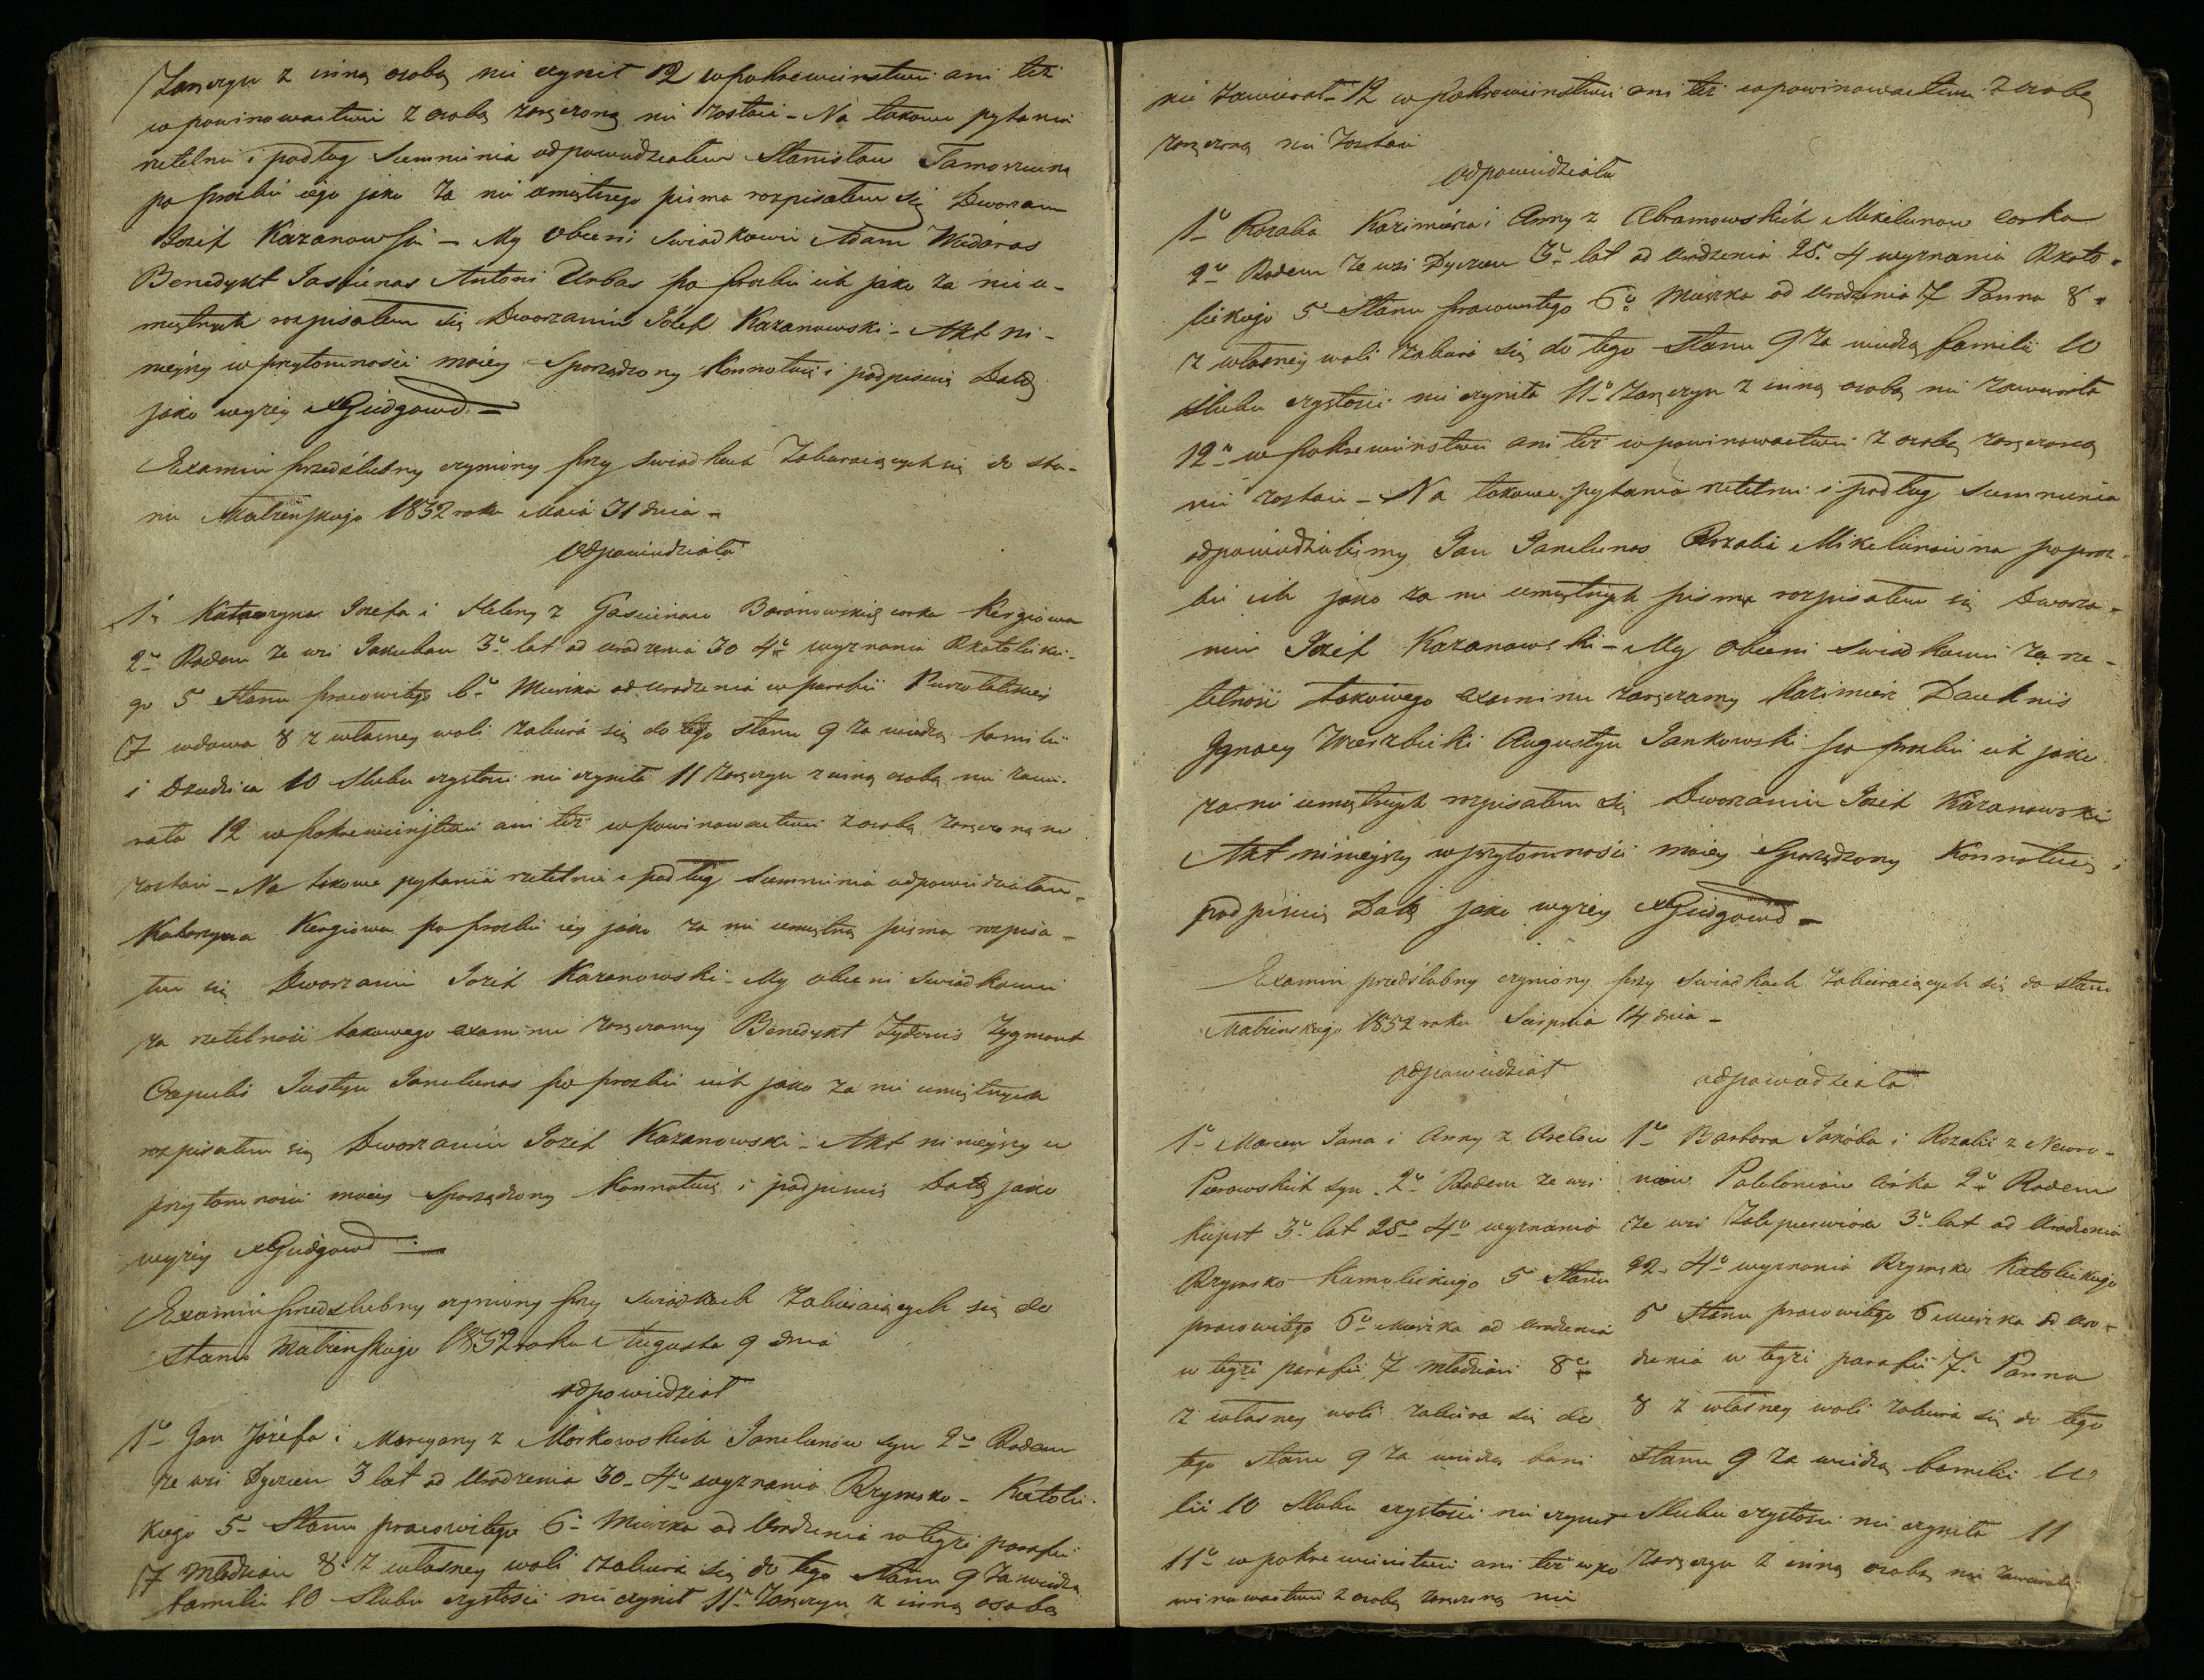 Zaręczyn z inną osobą nie czynił 12 w pokrewieństwie ani też
w powinowactwie z osobą zaręczoną nie zostaie - Na takowe pytania
rzetelnie i podług Sumnienia odpowiedziałem Stanisław
po prozbie iego jako za nie umiętnego pisma rozpisałem się Dworzanin
Jozef Kazanowski - My obecni swiadkowie Adam
Benedykt Antoni Urbas po prozbie ich jako za nie u-
miętnych rozpisałem się Dworzanin Jozef Kazanowski - Akt ni-
nieyszy w przytomności moiey Sporządzony Konnotuię i podpisuię Datą
jako wyżey
Examin przedślubny czyniony przy swiadkach Zabieraiących się do sta-
nu Małżenskiego 1852 roku Maia 31 dnia -
odpowiedziała
1o Katarzyna Jozefa i Heleny z Baranowskich corka Kergiowa
2o Rodem ze wsi 3o lat od urodzenia 30 4o wyznania Rkatolickie-
go 5 Stanu pracowitego 6o Mieszka od urodzenia w parafii
7 wdowa 8 z własney woli zabiera się do tego stanu 9 za wiedzą familii
i Dziedzica 10 Slubu czystości nie czyniła 11 zaręczyn z inną osobą nie zawie-
rała 12 w pokrewieństwie ani też w powinowactwie z osobą zaręczoną nie
zostaie - Na takowe pytania rzetelnie i podług Sumnienia odpowiedziałam
Katarzyna Kergiowa po prozbie iey jako za nie umiętną pisma rozpisa-
łem się Dworzanin Jozef Kazanowski - My obecni swiadkowie
za rzetelność takowego examinu zaręczamy Benedykt Zygmont
Justyn Janelunas po prozbie ich jako za nie umiętnych
rozpisałem się Dworzanin Jozef Kazanowski - Akt ninieyszy w
przytomności moiey Sporządzony Konnotuię i podpisuię Datą jako
wyżey
Examin przedslubny czyniony przy swiadkach Zabieraiących się do
stanu Małżenskiego 1852 roku Augusta 9 dnia
odpowiedział
1o Jan Józefa i Maryany z Morkowskich Janelunow syn 2o Rodem
ze wsi Dyrzew 3 lat od Urodzenia 30 - 4o wyznania Rzymsko - Katoli-
kiego 5 - Stanu pracowitego 6 - Mieszka od Urodzenia w teyże parafii
7 Młodzian 8 z własney woli zabiera się do tego Stanu 9 za wiedzą
familii 10 Slubu czystości nie czynił 11 - Zaręczyn z inną osobą
nie zawierał - 12 w pokrewieństwie ani też w powinowactwie z osobą
zaręczoną nie zostaie
odpowiedziała
1o Rozalia Kazimierza i Anny z Abramowskich Mikelunow corka
2o Rodem ze wsi Dyrzew 3o lat od Urodzenia 25. 4 wyznania Rkato-
lickiego 5 Stanu pracowitego 6o Mieszka od Urodzenia 7 Panna 8 -
z własney woli zabiera się do tego Stanu 9 za wiedzą familii 10
Slubu czystości nie czyniła 11o Zaręczyn z inną osobą nie zawierała
12o w pokrewieństwie ani też w powinowactwie z osobą zaręczoną
nie zostaie - Na takowe pytania rzetelnie i podług Sumnienia
odpowiedzieliśmy Jan Janelunas Rozalia Mikelunaiwna po proz-
bie ich jako za nie umiętnych pisma rozpisałem się Dworza-
nin Jozef Kazanowski - My obecni swiadkowie za rze-
telność takowego examinu zaręczamy Kazimierz Dauknis
Ignacy Augustyn Jankowski po prozbie ich jako
za nie umiętnych rozpisałem się Dworzanin Jozef Kazanowski
Akt ninieyszy w przytomności moiey Sporządzony Konnotuię i
podpisuię Datą jako wyżey
Examin przedślubny czyniony przy swiadkach Zabieraiących się do stanu
Małżenskiego 1852 roku Sierpnia 14 dnia -
odpowiedział
1o Marcin Jana i Anny z
syn 2o Rodem ze wsi
3o lat 25o 4o wyznania
Rzymsko 5 Stanu
pracowitego 6o Mieszka od Urodzenia
w teyże parafii 7 Młodzian 8o
z własney woli zabiera się do
tego stanu 9 za wiedzą fami
lii 10 Slubu czystości nie czynił
11o w pokrewieństwie ani też w po
winowactwie z osobą zaręczoną nie
odpowiedziała
1o Barbara Jakóba i Rozalii z
córka 2o Rodem
ze wsi 3o lat od Urodzenia
22 - 4o wyznania Rzymsko Katolickiego
5 Stanu pracowitego 6 Mieszka od Uro-
dzenia w teyże parafii 7o Panna
8 z własney woli zabiera się do tego
Stanu 9 za wiedzą familii 10
Slubu czystości nie czyniła 11
zaręczyn z inną osobą nie zawierała